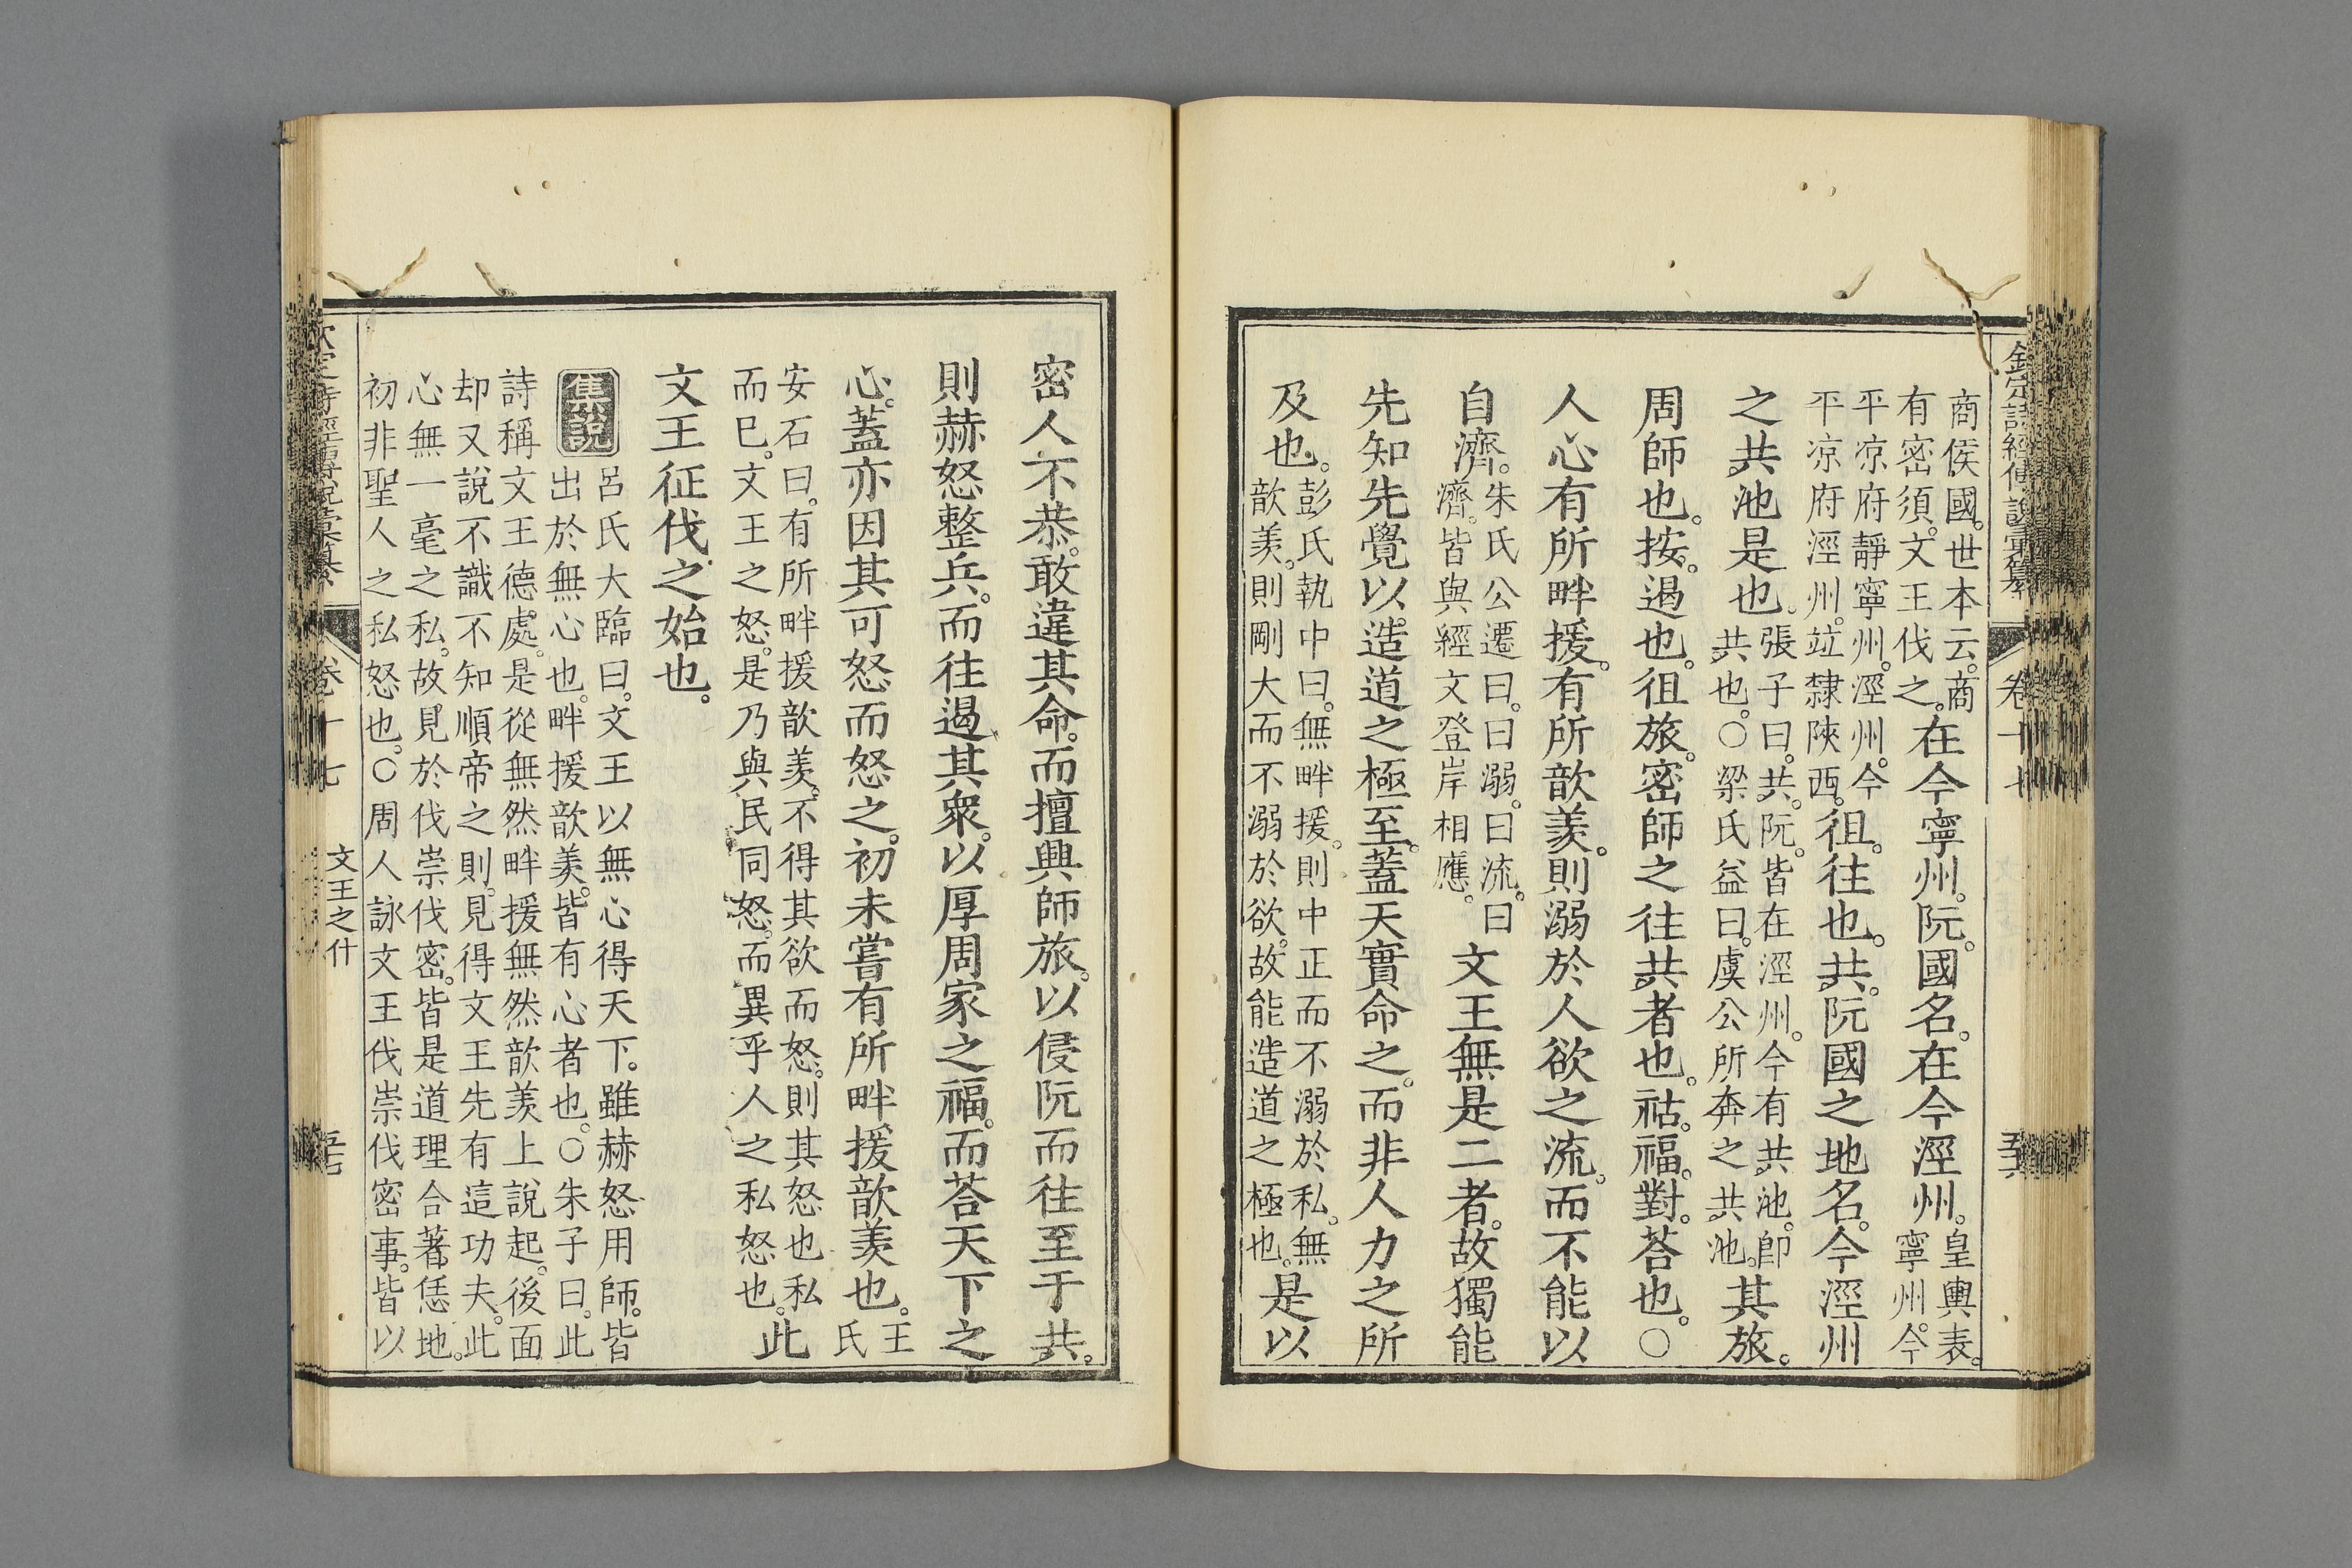 欽定詩經傳說彙纂 卷十七
商侯國。世本云。商有密須。文王伐之。在今寧州。阮。國名。在今涇州。皇輿表。寧州。今
平凉府靜寧州。涇州。今平凉府涇州。竝隸陝西。徂。往也。共。阮國之地名。今涇州
之共池是也。張子曰。共。阮。皆在涇州。今有共池。卽共也。〇梁氏益曰。虞公所奔之共池。其旅。
周師也。按。遏也。徂旅。密師之往共者也。祜。福。對。荅也。〇
人心有所畔援。有所歆羨。則溺於人欲之流。而不能以
自濟。朱氏公遷曰。曰溺。曰流。曰濟。皆與經文登岸相應。文王無是二者。故獨能
先知先覺以造道之極至。蓋天實命之。而非人力之所
及也。彭氏執中曰。無畔援。則中正而不溺於私。無歆羨。則剛大而不溺於欲。故能造道之極也。是以
密人不恭。敢違其命。而擅興師旅。以侵阮而往至于共。
則赫怒整兵。而往遏其衆。以厚周家之福。而荅天下之
心。蓋亦因其可怒而怒之。初未嘗有所畔援歆羨也。王氏
安石曰。有所畔援歆羨。不得其欲而怒。則其怒也私而已。文王之怒。是乃與民同怒。而異乎人之私怒也。此
文王征伐之始也。
集說 呂氏大臨曰。文王以無心得天下。雖赫怒用師。皆出於無心也。畔援歆羨。皆有心者也。〇朱子曰。此
詩稱文王德處。是從無然畔援無然歆羨上說起。後面
却又說不識不知順帝之則。見得文王先有這功夫。此
心無一毫之私。故見於伐崇伐密。皆是道理合著恁地。
初非聖人之私怒也。〇周人詠文王伐崇伐密事。皆以
欽定詩經傳說彙纂 卷十七 文王之什